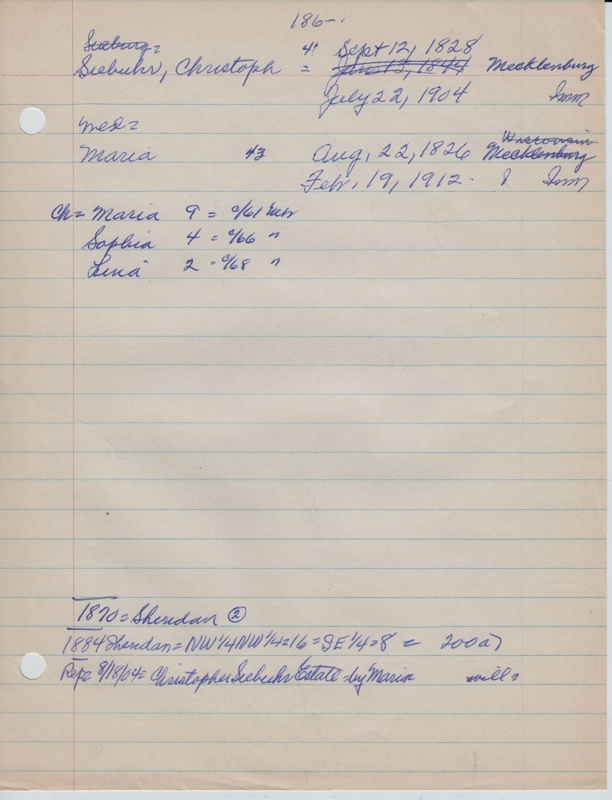 186-.
Sieburg =
Siebuhr, Christoph 41 = Sept 12, 1828
Jan 13, 1844 Mecklenburg
July 22, 1904 Imm
Maria 43 Aug, 22, 1826 Wisconsin Mecklenburg
Feb, 19, 1912. Imm
Ch = Maria 9 = c/61 Nebr
Sophia 4 = c/66 "
Lena 2 = c/68 "
1870 = Sheridan ②
1884 Sheridan = NW 1/4 NW 1/4 = 16 = SE 1/4 = 8 = 200 a
Rep = 8/18/04 = Christopher Siebuhr Estate - by Maria will =